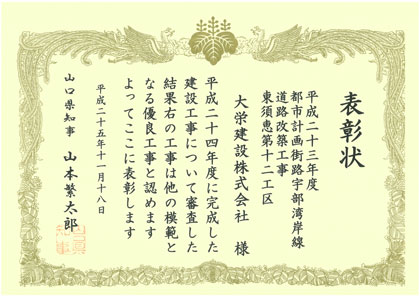 表彰状
平成二十三年度
都市計画街路宇部湾岸線
道路改築工事
東須恵第十二工区
大栄建設株式会社 様
平成二十四年度に完成した
建設工事について審査した
結果右の工事は他の模範と
なる優良工事と認めます
よってここに表彰します
平成二十五年十一月十八日
山口県知事 山本繁太郎